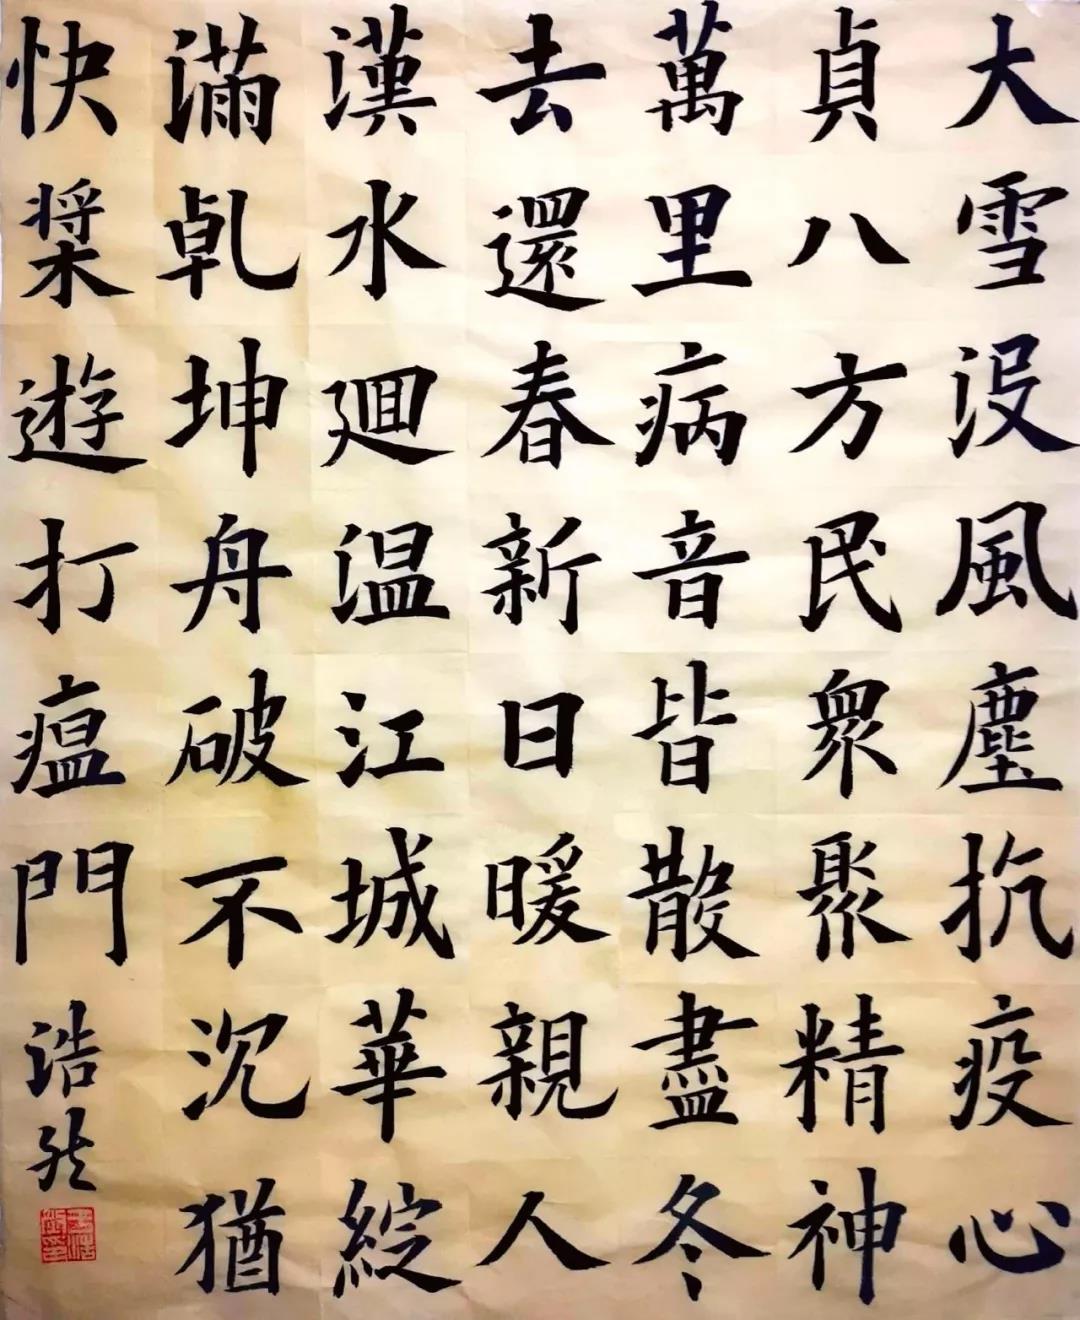 大雪没風塵抗疫心
貞八方民衆聚精神
萬里病音皆散盡冬
去還春新日暖親人
漢水廻温江城華綻
滿乹坤舟破不沉猶
快槳遊打瘟門
浩然